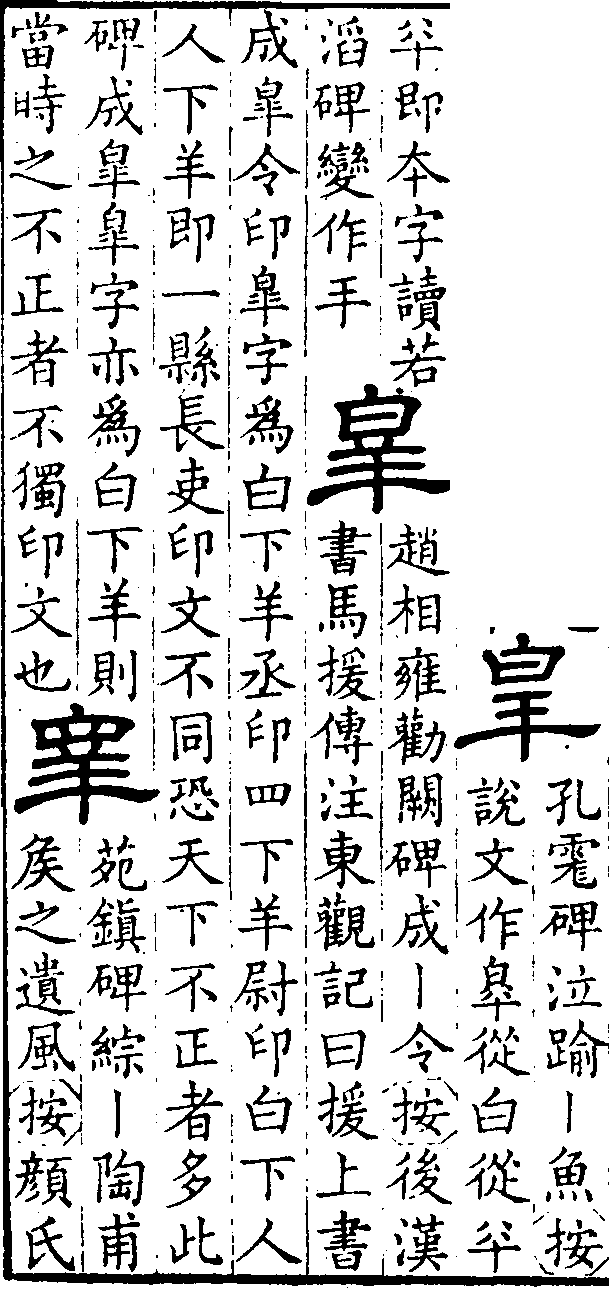 皐
孔碑泣踰丨魚按
說文作皋從白從𠦍
𠦍即夲字讀若
滔碑變作手
睾
趙相雍勸闕碑成丨令按後漢
書馬援傳注東觀記曰援上書
成臯令印臯字爲白下羊丞印四下羊尉印白下人
人下羊即一縣長吏印文不同恐天下不正者多此
碑成臯臯字亦爲白下羊則
當時之不正者不獨印文也
睪
苑鎮碑綜丨陶甫
矦之遺風按顔氏